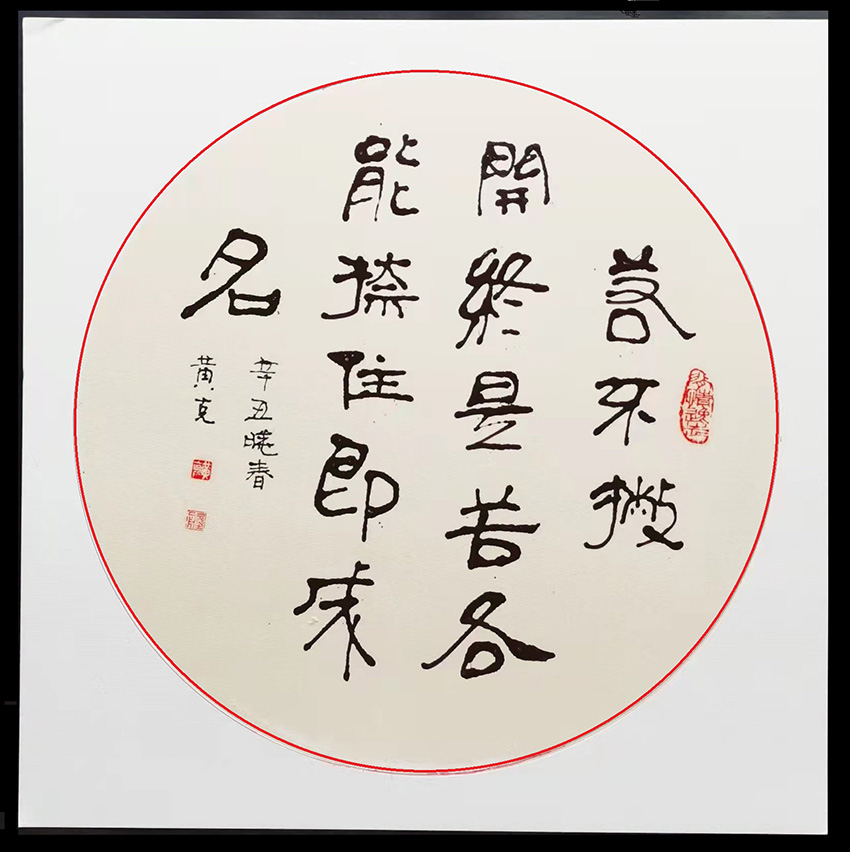 若不撇
開終是苦各
能捺住即成
名
辛丑曉春
黄克